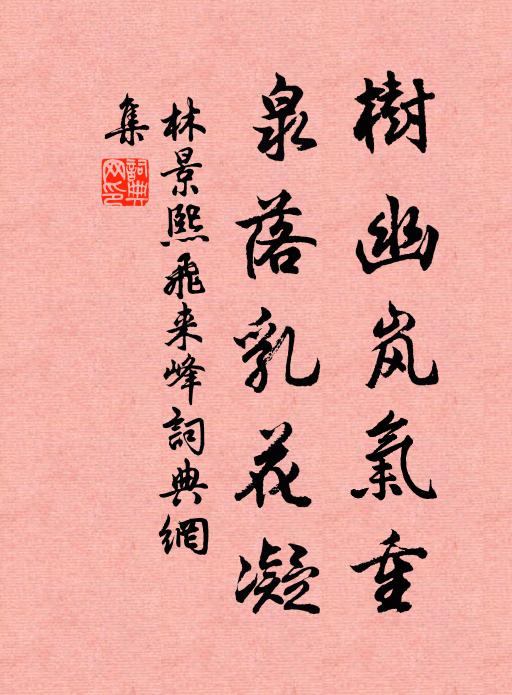 樹幽岚氣重
泉落乳花凝
林景熙飛来峰詞典網
集
詞典网印